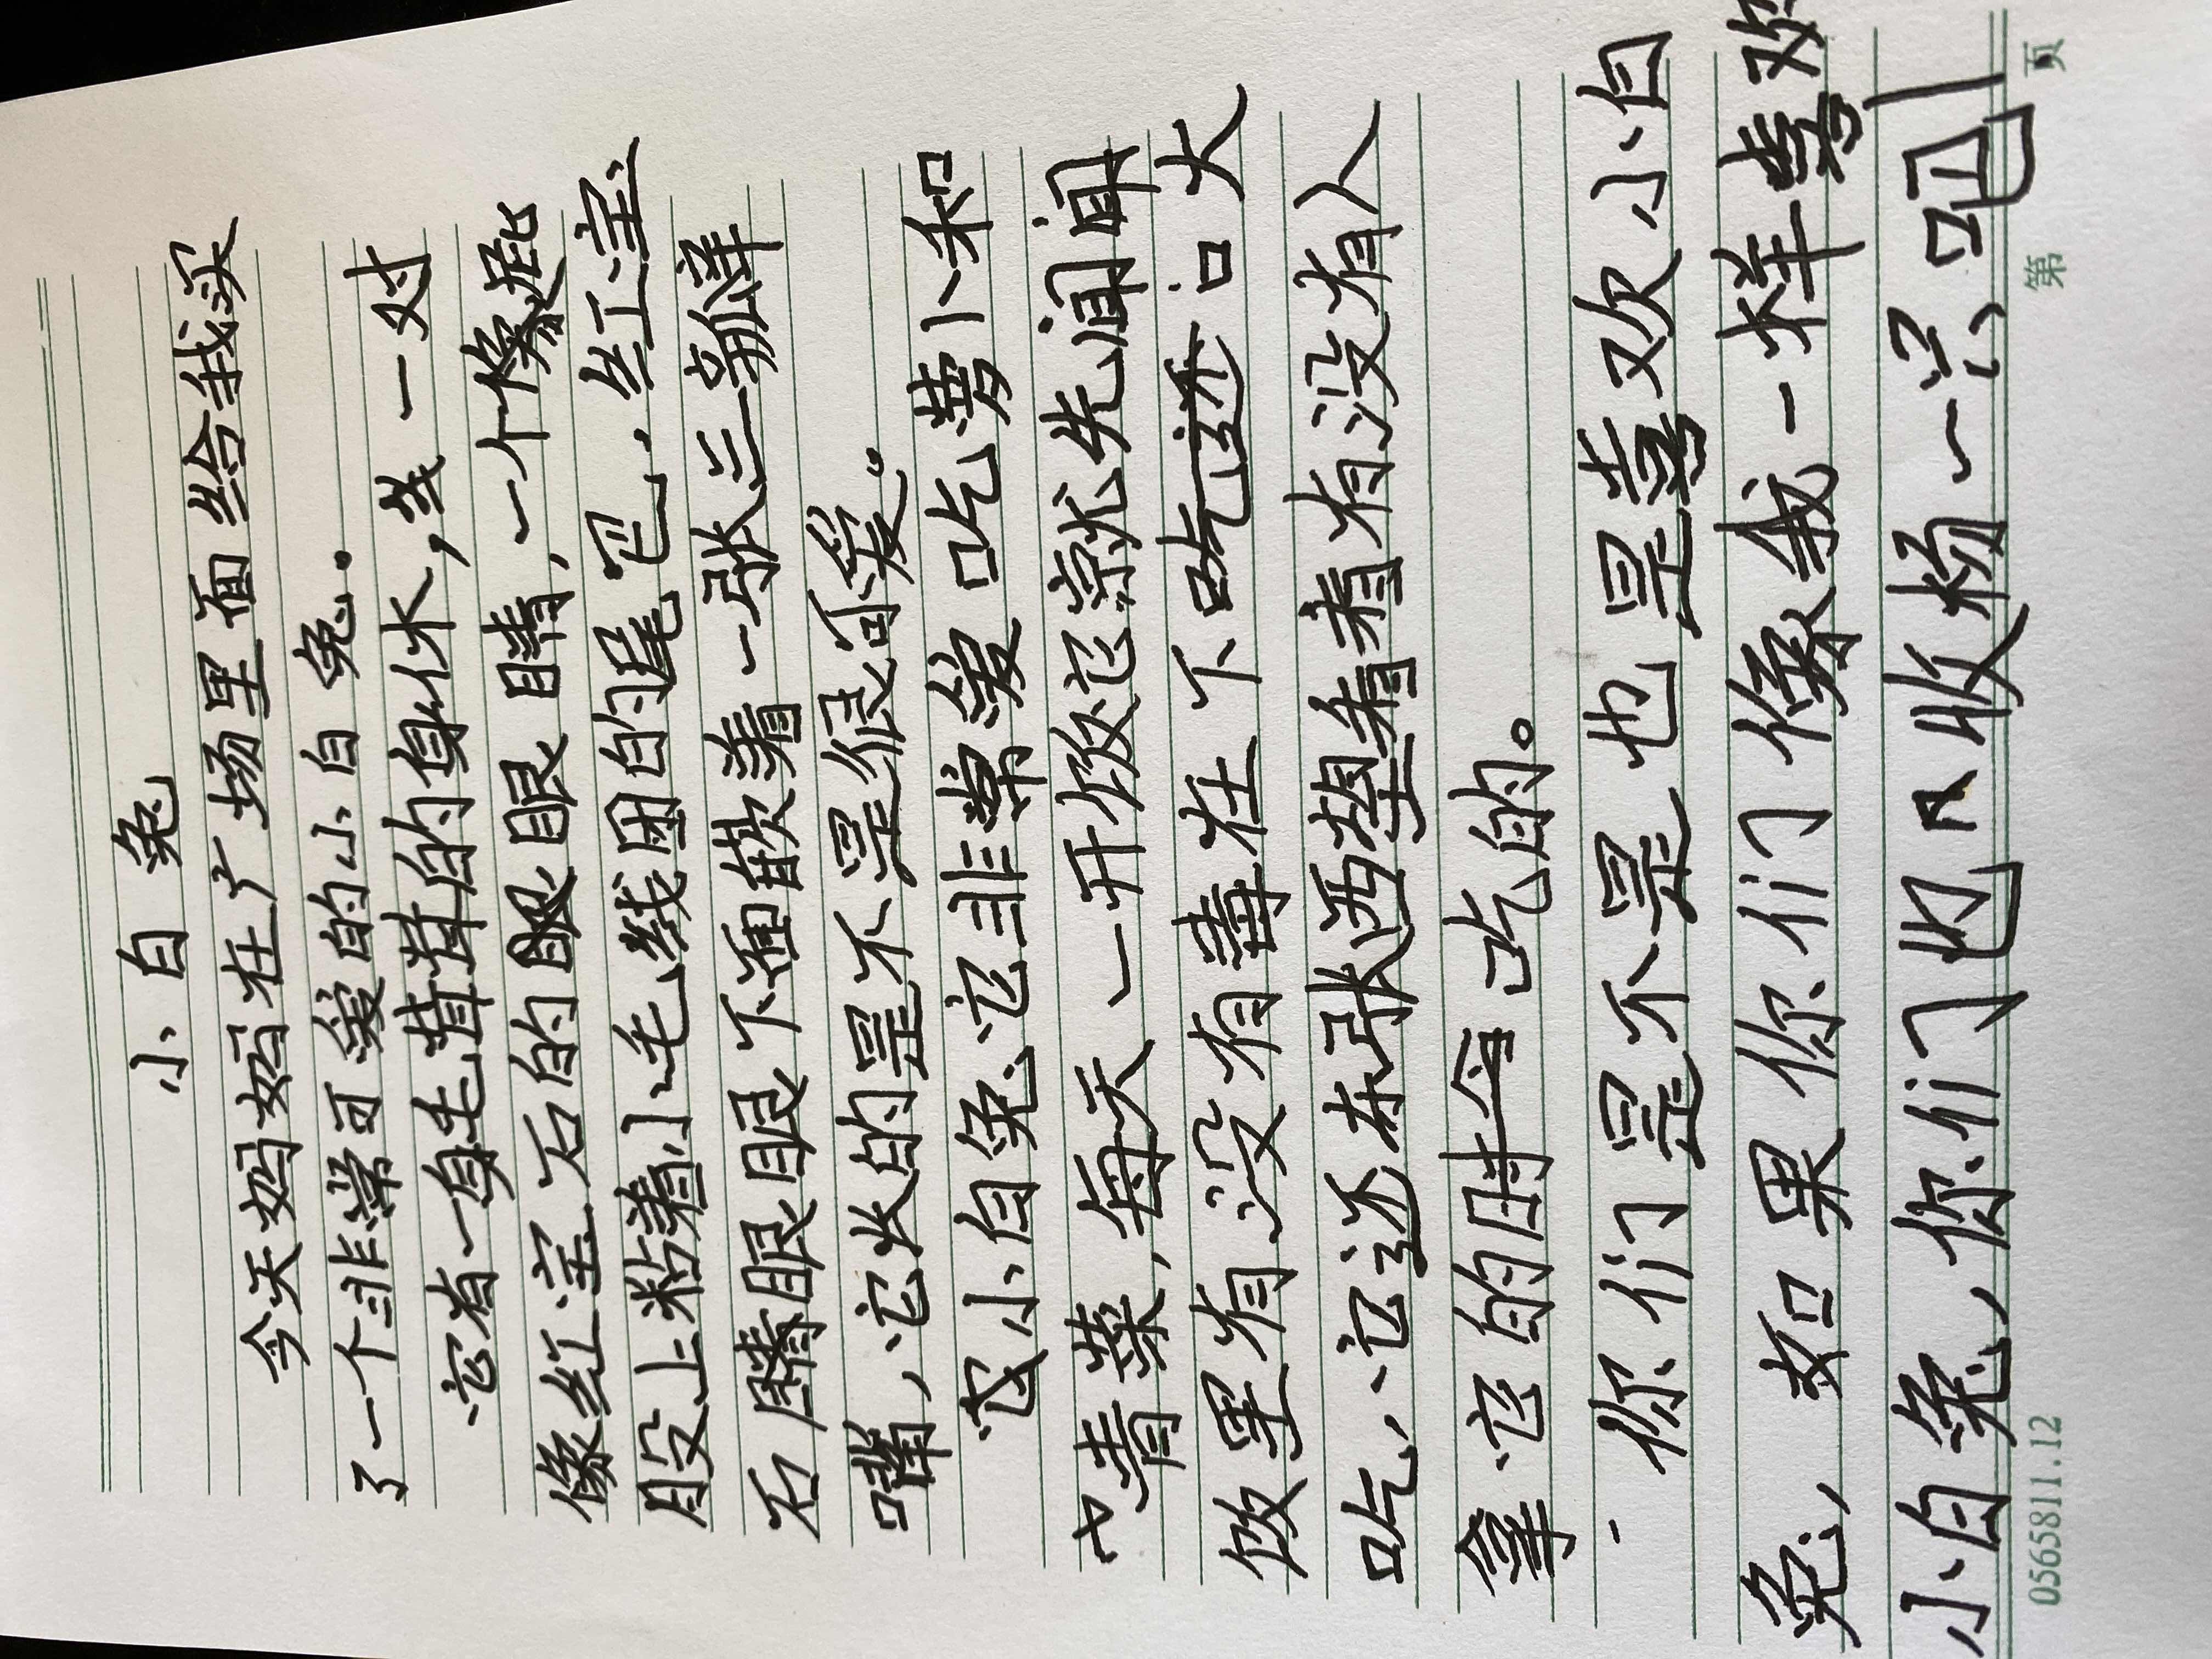 小白兔
今天妈妈在广场里面给我买
了一个非常可爱的小白兔。
它有一身毛茸茸的身体,一对
像红宝石的眼眼睛,一个像屁
股上粘着小毛线团的尾巴,红宝
石睛眼眼下面嵌着一张三瓣
嘴,它长的是不是很可爱。
小白兔它非常爱吃萝卜和
青菜,每天一开饭它就先闻闻
饭里有没有毒在下吃这口大
吃,它还东张西望看看有没有人
拿它的时令吃的。
你们是不是也是喜欢小白
兔,如果你们像我一样喜欢
小白兔,你们也收杨一只吧
0565811.12 第 页